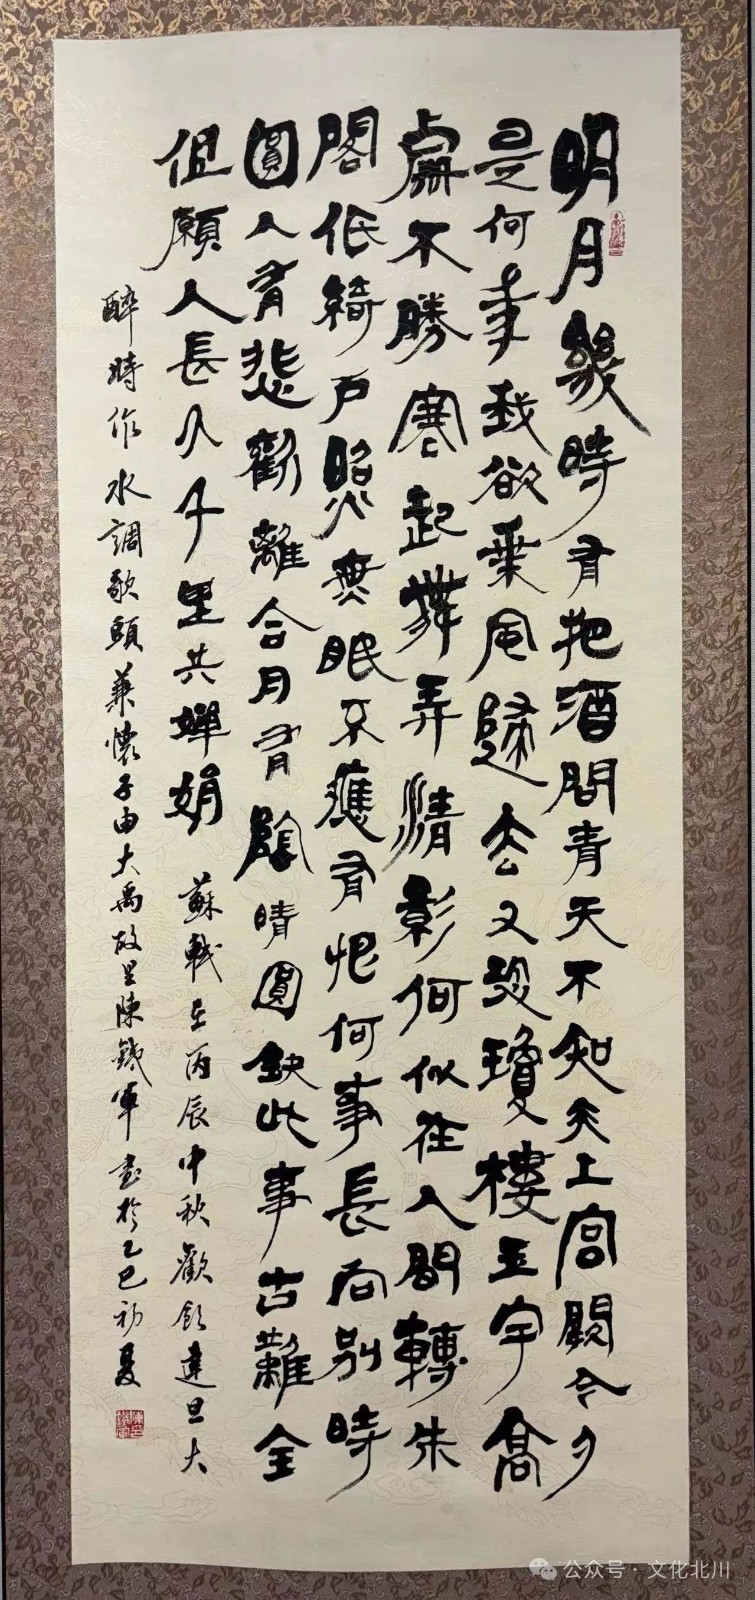 明月幾時有把酒問青天不知天上宫闕今夕
是何年我欲乘風歸去又恐瓊樓玉宇高
處不勝寒起舞弄清影何似在人間轉朱
閣低綺户照無眠不應有恨何事長向别時
圓人有悲歡離合月有陰晴圓缺此事古難全
但願人長久千里共嬋娟
蘇軾在丙辰中秋歡飲達旦大
醉時作水調歌頭兼懷子由大禹故里陳鐵軍書於乙巳初夏
公众号·文化北川